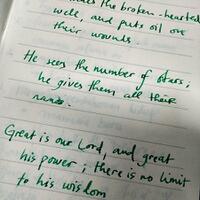 the broken-hearted
well, and puts oil on
their wounds.
He sees the number of stars;
he gives them all their
names.
Great is our Lord, and great
his power; there is no limit
to his wisdom